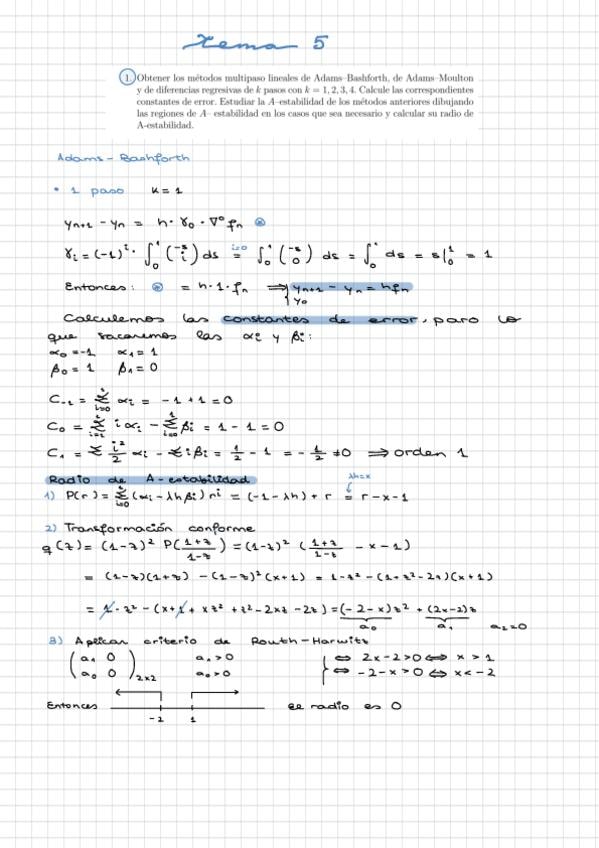 Tema 5
1. Obtener los métodos multipaso lineales de Adams–Bashforth, de Adams–Moulton
y de diferencias regresivas de k pasos con k = 1, 2, 3, 4. Calcule las correspondientes
constantes de error. Estudiar la A–estabilidad de los métodos anteriores dibujando
las regiones de A– estabilidad en los casos que sea necesario y calcular su radio de
A-estabilidad.
Adams - Bashforth
• 1 paso k = 1
yₙ₊₁ - yₙ = h · γ₀ · ∇⁰ fₙ ⊛
γᵢ = (-1)ⁱ · ∫₀¹ (-s i) ds =^{i=0} ∫₀¹ (-s 0) ds = ∫₀¹ ds = s|₀¹ = 1
Entonces: ⊛ = h · 1 · fₙ ⟹ { yₙ₊₁ - yₙ = h fₙ
y₀
Calculemos las constantes de error, para lo
que sacaremos las αi y βi:
α₀ = -1 α₁ = 1
β₀ = 1 β₁ = 0
C₋₁ = Σ αi = -1 + 1 = 0
C₀ = Σ i αi - Σ βi = 1 - 1 = 0
C₁ = Σ i²/2 αi - Σ i βi = 1/2 - 1 = - 1/2 ≠ 0 ⟹ orden 1
Radio de A - estabilidad
λh = x
1) P(r) = Σ (αi - λh βi) rⁱ = (-1 - λh) + r = r - x - 1
2) Transformación conforme
q(z) = (1-z)² P((1+z)/(1-z)) = (1-z)² ((1+z)/(1-z) - x - 1)
= (1-z)(1+z) - (1-z)² (x+1) = 1 - z² - (1+z²-2z)(x+1)
= 1 - z² - (x + 1 + xz² + z² - 2xz - 2z) = (-2-x)z² + (2x-2)z
a₀ a₁ a₂=0
3) Aplicar criterio de Routh-Harwitz
(a₁ 0 a₀ 0)₂ₓ₂ a₁ > 0 ⟺ 2x-2>0 ⟺ x > 1
a₀ > 0 ⟺ -2-x > 0 ⟺ x < -2
Entonces -2 1 el radio es 0